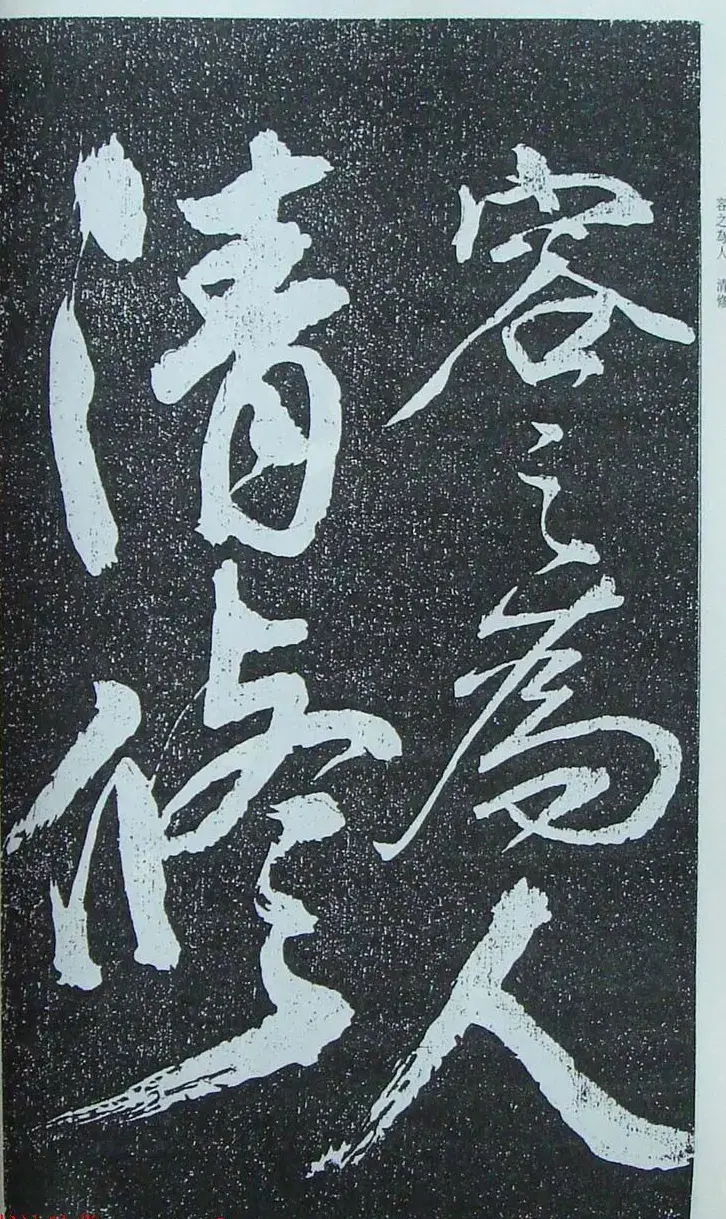 容之為人
清修
容之為人 清修